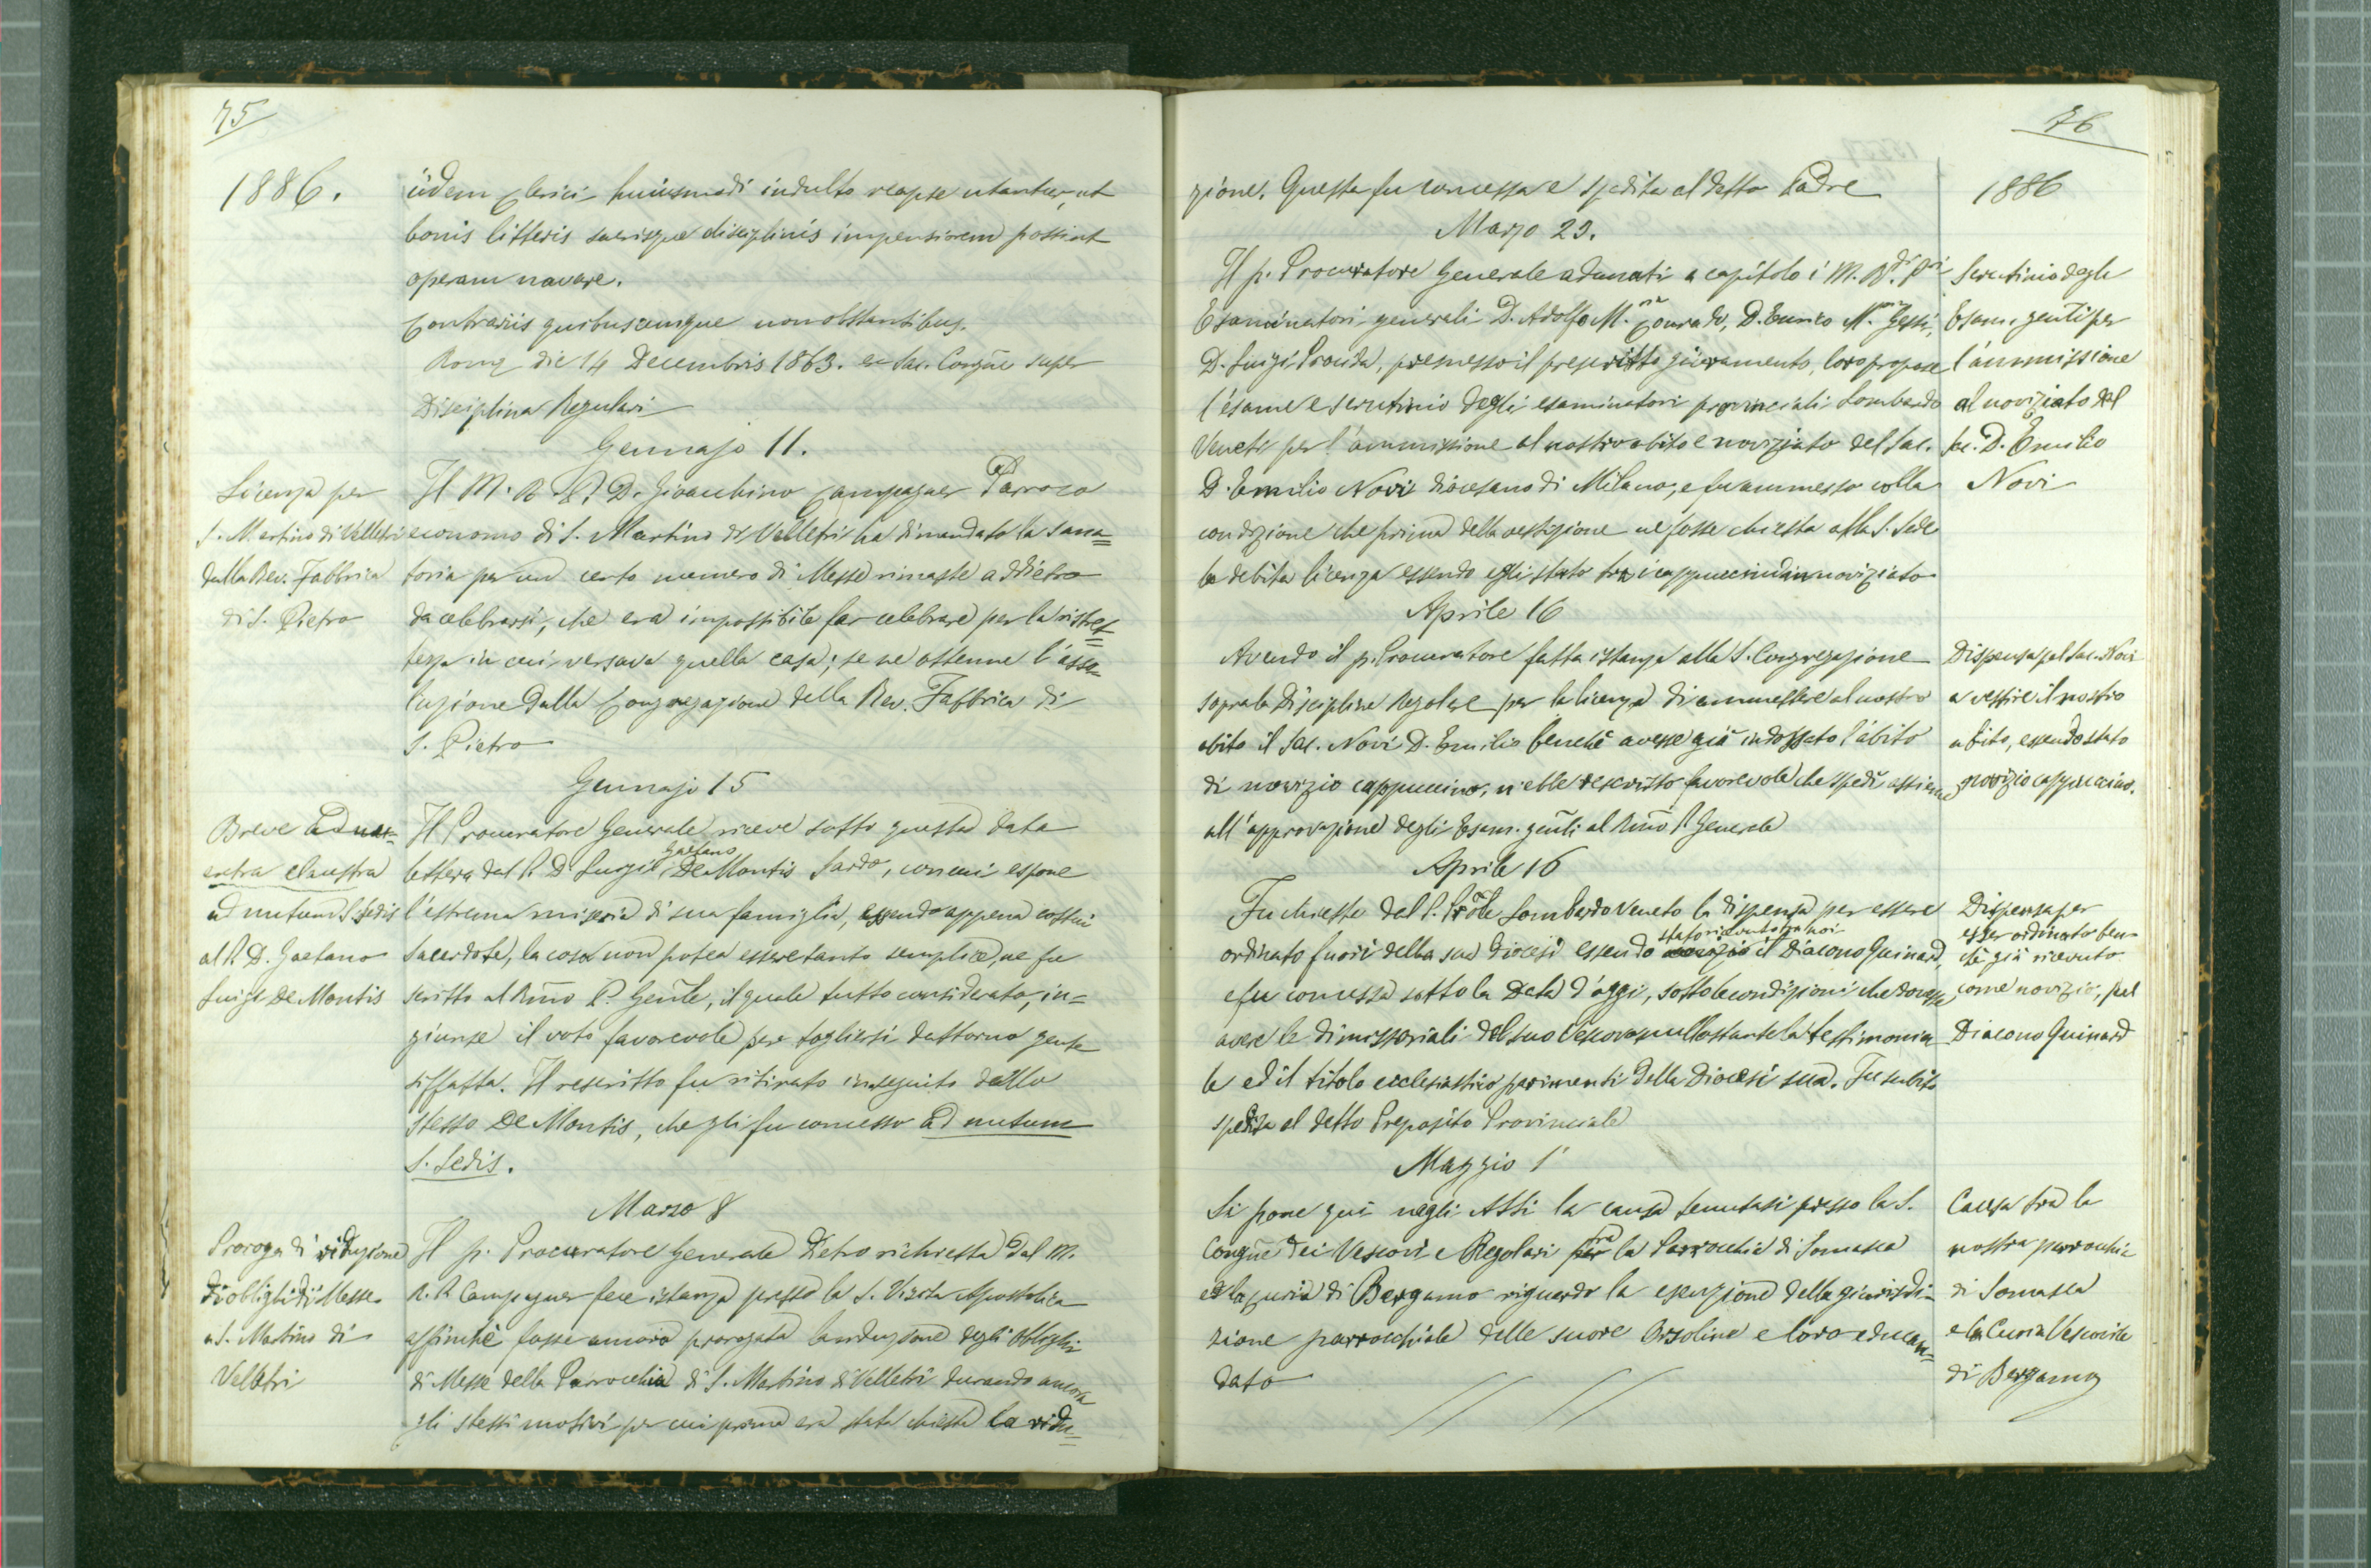 75
1886.
iidem Clerici huiusmodi indulto reapse utantur, ut
bonis litteris sacrisque disciplinis impensiorem possint
operam navare.
Contrariis quibuscumque non obstantibus.
Romæ die 14 Decembris 1863. ex Sac. Congñe super
Disciplina Regulari
Gennajo 11.
Licenza per
S. Martino di Velletri
dalla Rev. Fabbrica
di S. Pietro
Il M. R. P. D. Gioachino Campagner Parroco
economo di S. Martino di Velletri ha dimandato la sana=
toria per un certo numero di Messe rimaste addietro
da celebrarsi, che era impossibile far celebrare per la ristret=
tezza in cui versava quella casa; se ne ottenne l'asso=
luzione dalla Congregazione della Rev. Fabbrica di
S. Pietro
Gennajo 15
Breve
extra claustra
ad nutum S. Sedis
al P. D. Gaetano
Luigi De Montis
Il Procuratore Generale riceve sotto questa data
lettera dal P. D. Luigi Gaetano De Montis Sardo, con cui espone
l'estrema miseria di sua famiglia, essendo appena costui
Sacerdote, la cosa non potea essere tanto semplice, ne fu
scritto al Rmo P. Genle, il quale tutto considerato, in=
giunse il voto favorevole per togliersi dattorno gente
siffatta. Il rescritto fu ritirato in seguito dallo
stesso De Montis, che gli fu concesso ad nutum
S. Sedis.
Marzo 8
Proroga di riduzione
di oblighi di Messe
a S. Martino di
Velletri
Il p. Procuratore Generale Dietro richiesta dal M.
R. P. Campagner fece istanza presso la S. Visita Apostolica
affinchè fosse ancora prorogata la riduzione degli obblighi
di Messe della Parrocchia di S. Martino di Velletri durando ancora
gli stessi motivi per cui prima era stata chiesta la ridu=
76
1886
zione. Questa fu concessa e spedita al detto Padre
Marzo 29.
Scrutinio degli
Esam. genli per
l'ammissione
al noviziato del
sac. D. Emilio
Novi
Il p. Procuratore Generale adunati a capitolo i M. Rdi Pri
Esaminatori generali D. Adolfo M. Conrado, D. Enrico M. Gessi,
D. Luigi Procida, premesso il prescritto giuramento, loro propose
l'esame e scrutinio degli esaminatori provinciali Lombardo
Veneti per l'ammissione al nostro abito e noviziato del Sac.
D. Emilio Novi diocesano di Milano, e fu ammesso colla
condizione che prima della vestizione ne fosse chiesta alla S. Sede
la debita licenza essendo egli stato tra i cappuccini in noviziato
Aprile 16
Dispensa pel Sac. Novi
a vestire il nostro
abito, essendo stato
novizio cappuccino.
Avendo il p. Procuratore fatta istanza alla S. Congregazione
sopra la Disciplina Regolare per la licenza di ammettere al nostro
abito il Sac. Novi D. Emilio benchè avesse già indossato l'abito
di novizio cappuccino, n'ebbe rescritto favorevole che spedì assieme
all'approvazione degli Esam. genli al Rmo P. Generale
Aprile 16
Dispensa per
esser ordinato ben
chè già ricevuto
come novizio, pel
Diacono Guinard
Fu chiesta dal P. Prole Lombardo Veneto la dispensa per essere
ordinato fuori della sua Diocesi essendo stato ricevuto tra noi il Diacono Guinard,
e fu concessa sotto la Data d'oggi, sotto le condizioni che dovesse
avere le dimissoriali del suo Vescovo nullostante la testimonia
le ed il titolo ecclesiastico parimenti della Diocesi sua. Fu subito
spedita al detto Preposito Provinciale
Maggio 1
Causa tra la
nostra parrocchia
di Somasca
e la Curia Vescovile
di Bergamo
Si pone quì negli Atti la causa tenutasi presso la S.
Congñe dei Vescovi e Regolari tra la Parrocchia di Somasca
e la curia di Bergamo riguardo la esenzione della giurisdi=
zione parrocchiale delle suore Orsoline e loro educan=
dato